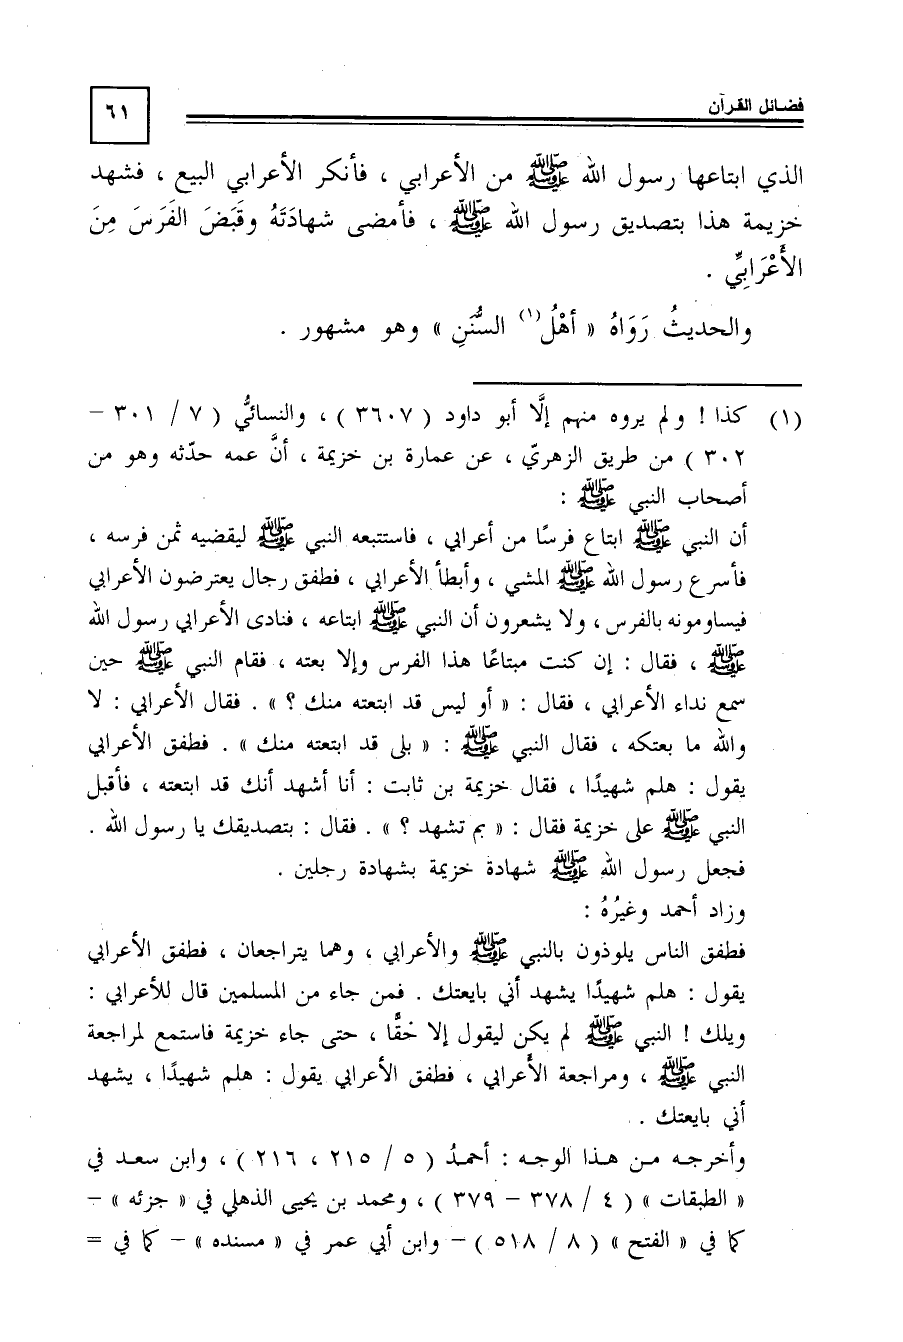 فضائل القرآن
٦١
الذي ابتاعها رسول الله ﷺ من الأعرابي ، فأنكر الأعرابي البيع ، فشهد
خزيمة هذا بتصديق رسول الله ﷺ ، فأمضى شهادَتَهُ وقَبَضَ الفَرَسَ مِنَ
الأَعْرَابِيِّ .
والحديثُ رَوَاهُ « أهْلُ(١) السُّنَنِ » وهو مشهور .
(١) كذا ! ولم يروه منهم إلَّا أبو داود ( ٣٦٠٧ ) ، والنسائيُّ ( ٧ / ٣٠١ –
٣٠٢ ) من طريق الزهريّ ، عن عمارة بن خزيمة ، أنَّ عمه حدّثه وهو من
أصحاب النبي ﷺ :
أن النبي ﷺ ابتاع فرسًا من أعرابي ، فاستتبعه النبي ﷺ ليقضيه ثمن فرسه ،
فأسرع رسول الله ﷺ المشي ، وأبطأ الأعرابي ، فطفق رجال يعترضون الأعرابي
فيساومونه بالفرس ، ولا يشعرون أن النبي ﷺ ابتاعه ، فنادى الأعرابي رسول الله
ﷺ ، فقال : إن كنت مبتاعًا هذا الفرس وإلا بعته ، فقام النبي ﷺ حين
سمع نداء الأعرابي ، فقال : « أو ليس قد ابتعته منك ؟ » . فقال الأعرابي : لا
والله ما بعتكه ، فقال النبي ﷺ : « بلى قد ابتعته منك » . فطفق الأعرابي
يقول : هلم شهيدًا ، فقال خزيمة بن ثابت : أنا أشهد أنك قد ابتعته ، فأقبل
النبي ﷺ على خزيمة فقال : « بم تشهد ؟ » . فقال : بتصديقك يا رسول الله .
فجعل رسول الله ﷺ شهادة خزيمة بشهادة رجلين .
وزاد أحمد وغيرُهُ :
فطفق الناس يلوذون بالنبي ﷺ والأعرابي ، وهما يتراجعان ، فطفق الأعرابي
يقول : هلم شهيدًا يشهد أني بايعتك . فمن جاء من المسلمين قال للأعرابي :
ويلك ! النبي ﷺ لم يكن ليقول إلا حقًّا ، حتى جاء خزيمة فاستمع لمراجعة
النبي ﷺ ، ومراجعة الأعرابي ، فطفق الأعرابي يقول : هلم شهيدًا ، يشهد
أني بايعتك .
وأخرجه من هذا الوجه : أحمدُ ( ٥ / ٢١٥ ، ٢١٦ ) ، وابن سعد في
« الطبقات » ( ٤ / ٣٧٨ – ٣٧٩ ) ، ومحمد بن يحيى الذهلي في « جزئه » –
كما في « الفتح » ( ٨ / ٥١٨ ) – وابن أبي عمر في « مسنده » – كما في =